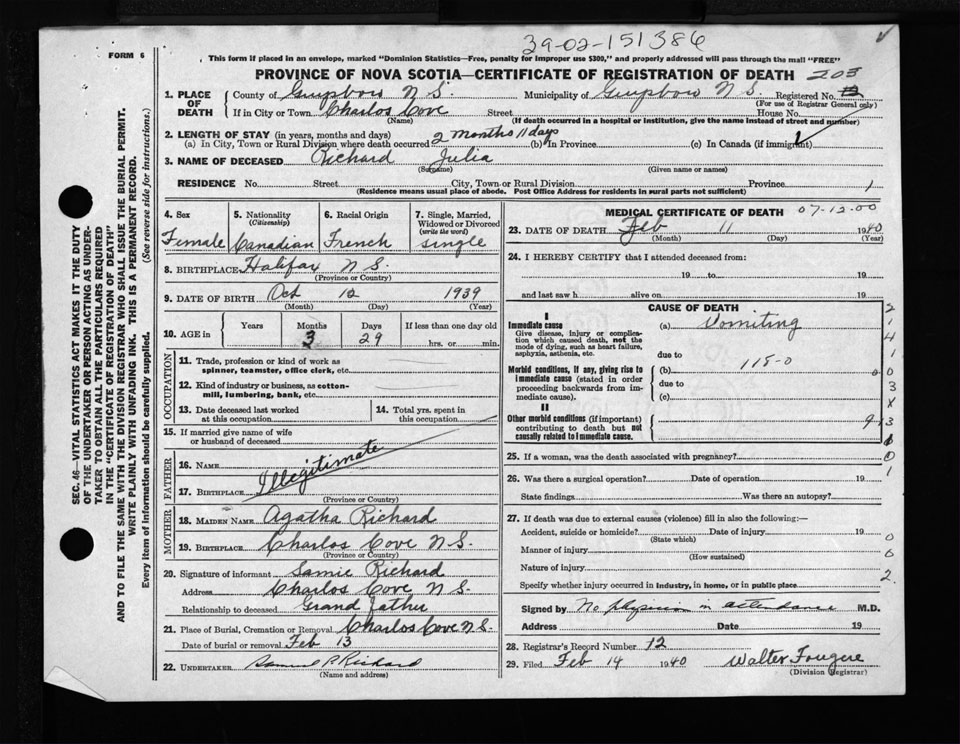 39-02-151386
FORM 6
This form if placed in an envelope, marked "Dominion Statistics—Free, penalty for improper use $300," and properly addressed will pass through the mail "FREE"
PROVINCE OF NOVA SCOTIA—CERTIFICATE OF REGISTRATION OF DEATH 203
1. PLACE OF DEATH County of Guysboro N S. Municipality of Guysboro N S. Registered No. 12
(For use of Registrar General only)
If in City or Town Charlos Cove Street House No.
(Name) (If death occurred in a hospital or institution, give the name instead of street and number)
2. LENGTH OF STAY (in years, months and days)
(a) In City, Town or Rural Division where death occurred 2 months 11 days (b) In Province (c) In Canada (if immigrant)
3. NAME OF DECEASED Richard Julia
(Surname) (Given name or names)
RESIDENCE No. Street City, Town or Rural Division Province 1
(Residence means usual place of abode. Post Office Address for residents in rural parts not sufficient)
4. Sex Female
5. Nationality (Citizenship) Canadian
6. Racial Origin French
7. Single, Married, Widowed or Divorced (write the word) single
8. BIRTHPLACE Halifax N S.
(Province or Country)
9. DATE OF BIRTH Oct 12 1939
(Month) (Day) (Year)
10. AGE in Years Months Days If less than one day old
3 29 hrs. or min.
OCCUPATION
11. Trade, profession or kind of work as spinner, teamster, office clerk, etc.
12. Kind of industry or business, as cotton-mill, lumbering, bank, etc.
13. Date deceased last worked at this occupation
14. Total yrs. spent in this occupation
15. If married give name of wife or husband of deceased
FATHER
16. NAME Illegitimate
17. BIRTHPLACE
(Province or Country)
MOTHER
18. MAIDEN NAME Agatha Richard
19. BIRTHPLACE Charlos Cove N S.
(Province or Country)
20. Signature of informant Samie Richard
Address Charlos Cove N S.
Relationship to deceased Grand father
21. Place of Burial, Cremation or Removal Charlos Cove N S.
Date of burial or removal Feb 13
22. UNDERTAKER Samuel P. Richard
(Name and address)
MEDICAL CERTIFICATE OF DEATH 07-12-00
23. DATE OF DEATH Feb 11 1940
(Month) (Day) (Year)
24. I HEREBY CERTIFY that I attended deceased from:
19 to 19
and last saw h alive on 19
CAUSE OF DEATH
I
Immediate cause
Give disease, injury or complication which caused death, not the mode of dying, such as heart failure, asphyxia, asthenia, etc.
(a) Vomiting
due to
Morbid conditions, if any, giving rise to immediate cause (stated in order proceeding backwards from immediate cause).
(b) 118-0
due to
(c)
II
Other morbid conditions (if important) contributing to death but not causally related to immediate cause.
25. If a woman, was the death associated with pregnancy?
26. Was there a surgical operation? Date of operation 19
State findings Was there an autopsy?
27. If death was due to external causes (violence) fill in also the following:—
Accident, suicide or homicide? Date of injury 19
(State which)
Manner of injury
(How sustained)
Nature of injury
Specify whether injury occurred in industry, in home, or in public place
Signed by No physician in attendance M.D.
Address Date 19
28. Registrar's Record Number 12
29. Filed Feb 14 1940 Walter Fougere
(Division Registrar)
SEC. 46—VITAL STATISTICS ACT MAKES IT THE DUTY
OF THE UNDERTAKER OR PERSON ACTING AS UNDER-
TAKER TO OBTAIN ALL THE PARTICULARS REQUIRED
IN THE "CERTIFICATE OF REGISTRATION OF DEATH"
AND TO FILE THE SAME WITH THE DIVISION REGISTRAR WHO SHALL ISSUE THE BURIAL PERMIT.
WRITE PLAINLY WITH UNFADING INK. THIS IS A PERMANENT RECORD.
Every item of information should be carefully supplied. (See reverse side for instructions.)